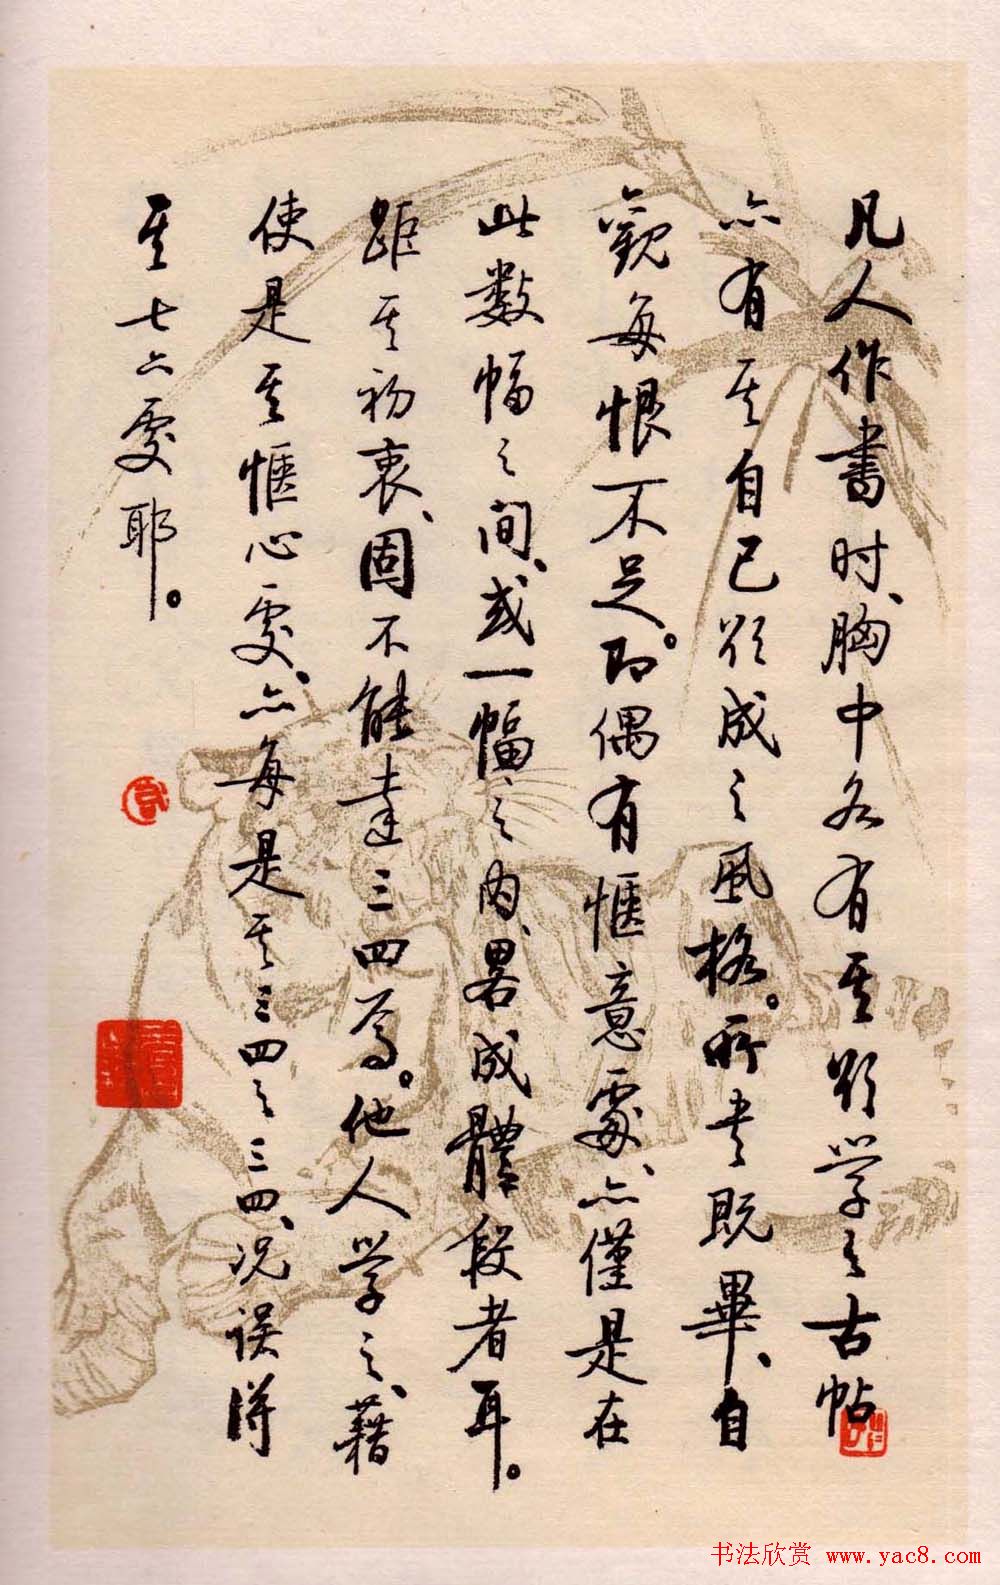 凡人作書时、胸中各有其欲学之古帖
亦有其自己欲成之風格。所书既畢、自
觀每恨不足。即偶有愜意處、亦僅是在
此数幅之间、或一幅之内、畧成體段者耳。
距其初衷、固不能達三四焉。他人学之、藉
使是其愜心处、亦每是其三四之三四、况误得
其七六处耶。
书法欣赏 www.yac8.com